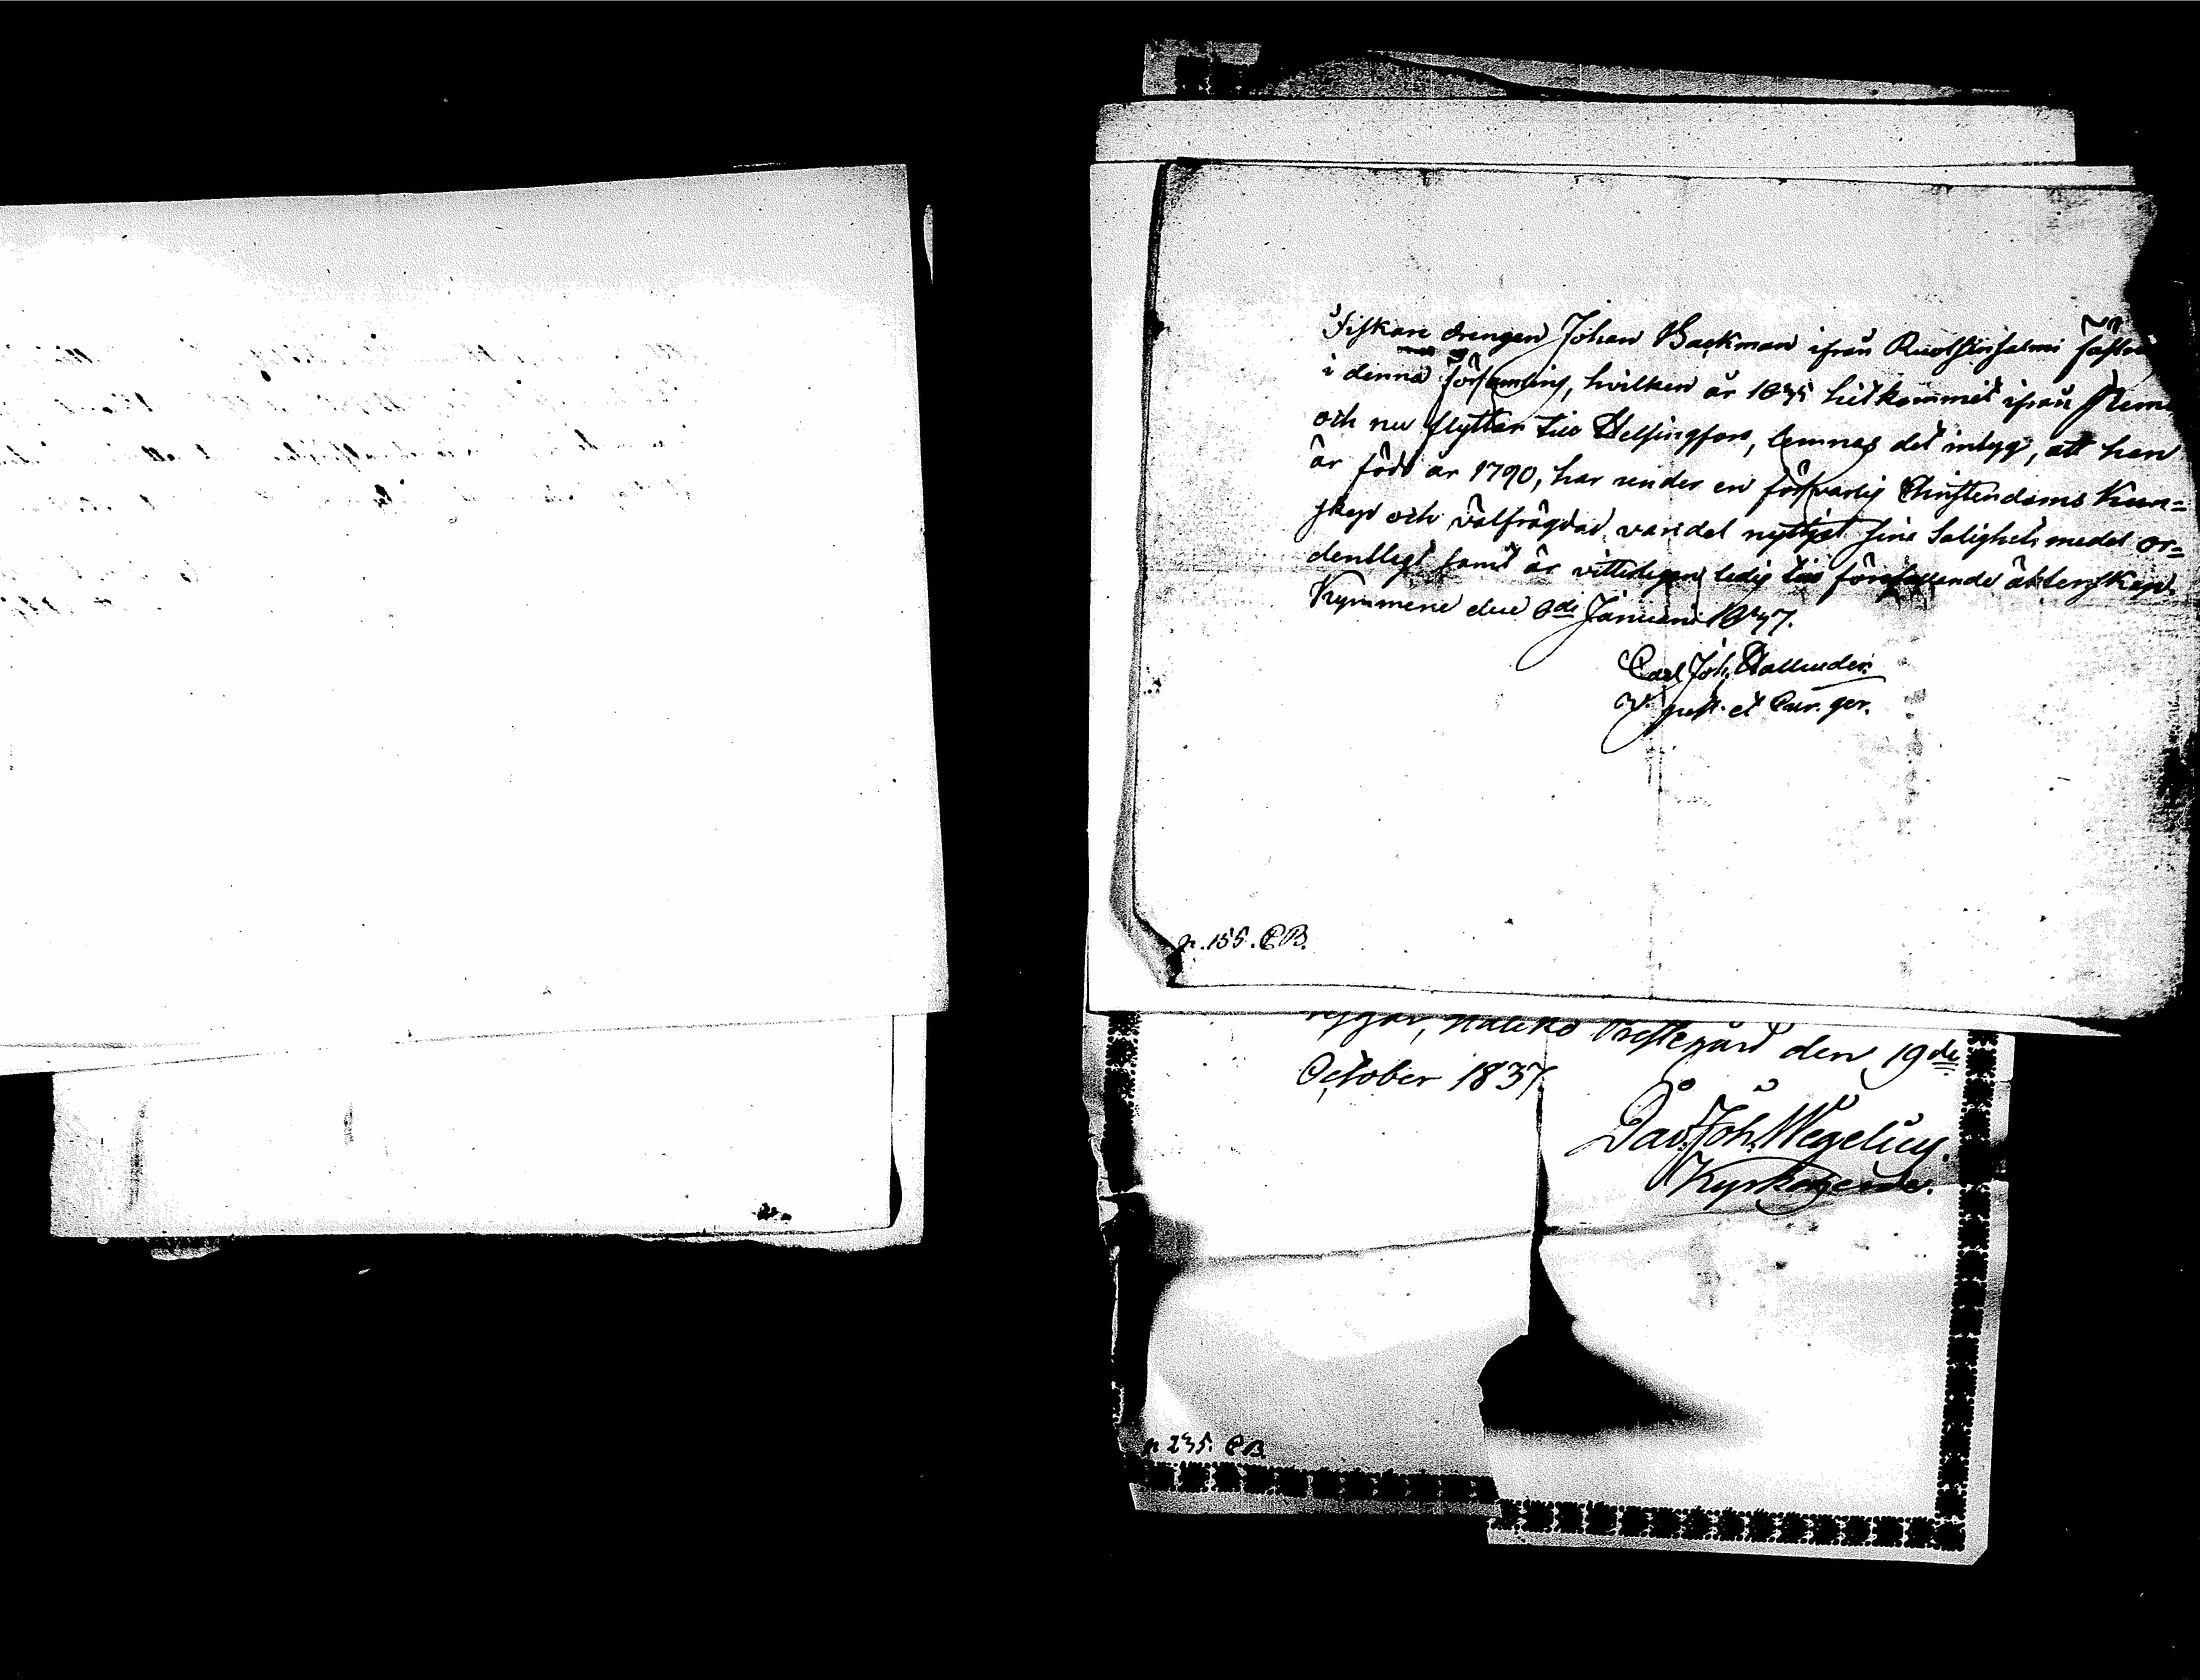 Fiskare drengen Johan Backman ifrån Ruotsinsalmi
i denna församling, hvilken år 1835 hitkommit ifrån
och nu flyttar till Helsingfors, lemnas det intyg, att han
är född år 1790, har under en försvarlig Christendoms Kun=
skap och välfrägdad vandel nyttjat sine Salighets medel or=
dentligt samt är vitterligen ledig till förefallande äktenskap.
Kymmene den 6de Januari 1837.
Carl Joh.
V. past. et Cur. ger.
p. 155. C B.
Prestegård den 19de
October 1837.
Dav. Joh. Wegelius.
Kyrkoherde.
p 235. C B.